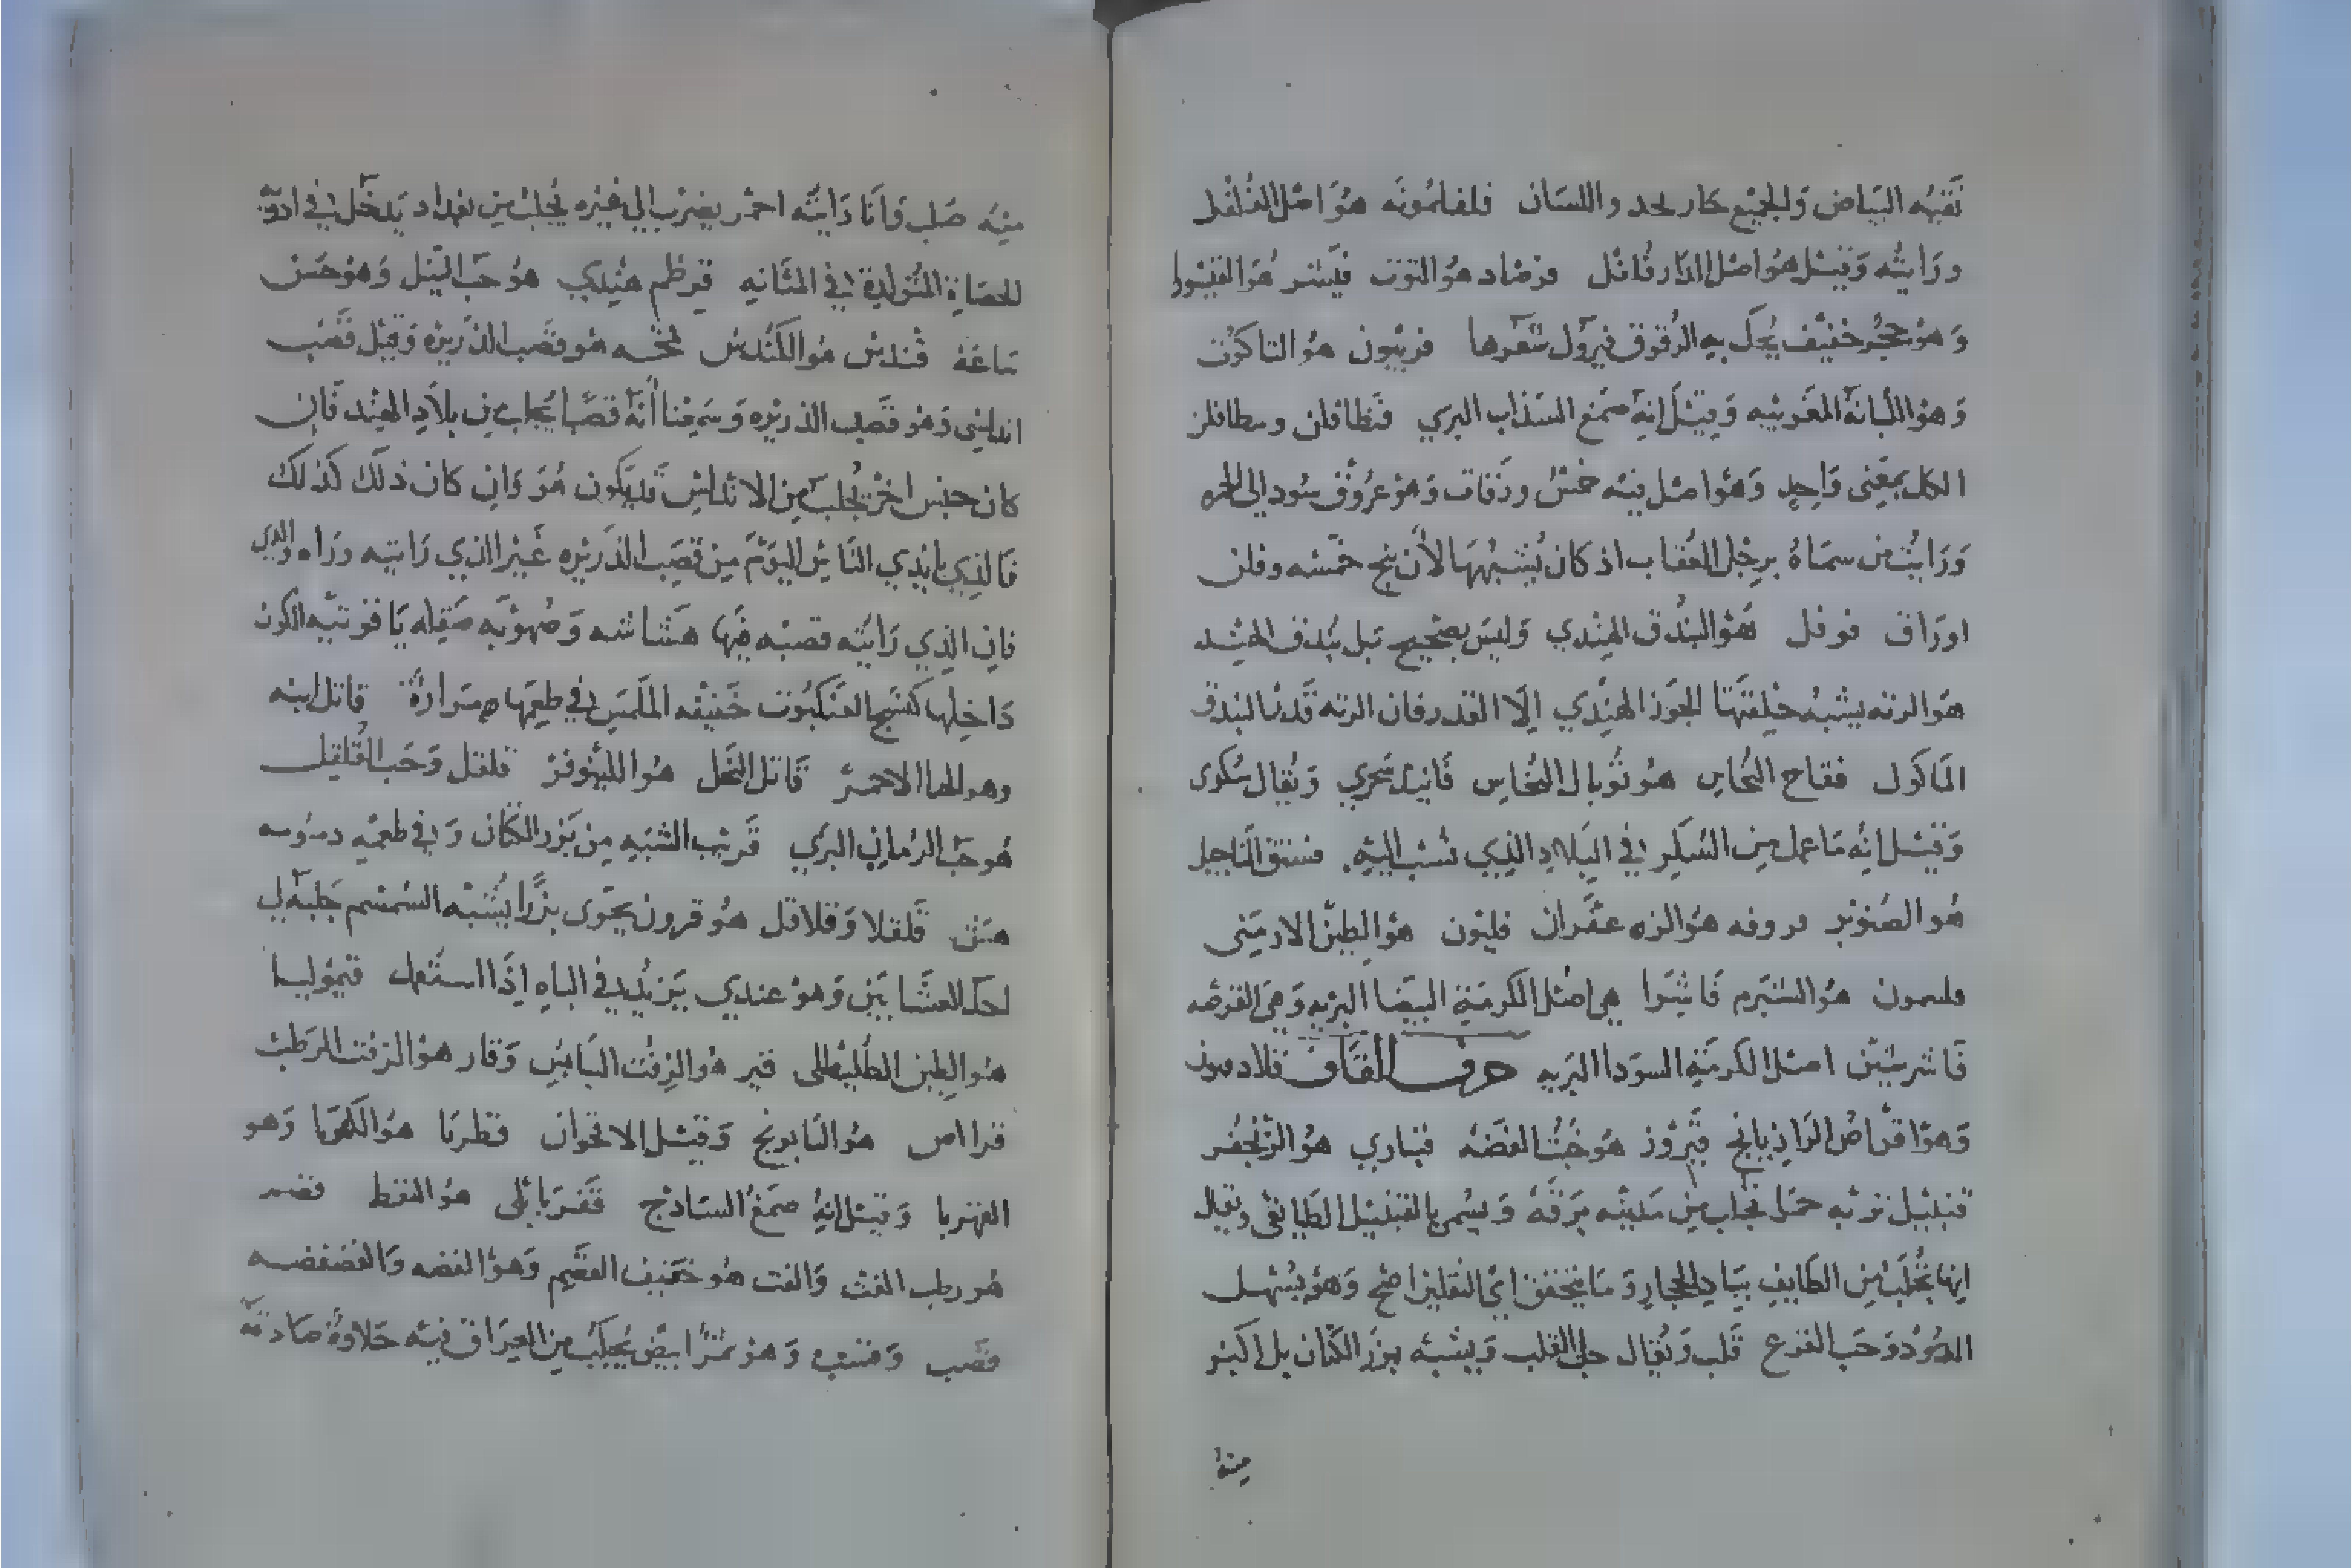 نقيه البياض والجميع حار يحد واللسان فلفلمونه هو اصل الفلفل
ورايته وقيل هو اصل الدارفلفل فرصاد هو التوت فينك هو القيشور
وهو حجر خفيف يحك به الرقوق فيزول شعرها فربيون هو التاكوت
وهو اللبانه المغربيه وقيل انه صمغ السذاب البري فنطافلن وبنطافلن
الكل بمعنى واحد وهو اصل فيه خمس ورقات وهو عروق سود الى الحمره
ورايت من سماه برجل العقاب اذ كان يشبهها لان بنج خمسه وفلن
اوراق فوفل هو البندق الهندي وليس بصحيح بل بندق الهند
هو الرته يشبه خلقتها الجوز الهندي الا القدر فان الرته قدر البندق
الماكول فقاح النحاس هو توبال النحاس فانيد سجري ويقال سكرى
وقيل انه ما عمل من السكر في البلاد الذي نسب اليه. فستق الناجيل
هو الصنوبر هو الزه عفران فليون هو الطين الارمينى
هو الشبرم فاشرا هي اصل الكرمة البيضا البريه وهي
فاشرشين اصل الكرمة السودا البريه حرف القاف
وهو اقراص الرازيانج قيروز هو خبث الفضه قنباري هو الزنجفر
قنبيل تربه حمرا تجلب من مدينه برقة ويسمى بالقنبيل الطايفى ويقال
انها تجلب من الطايف ببلاد الحجاز وما تحققن اي النقلين اصح وهو يسهل
الدود وحب القرع قلب ويقال حب القلب ويشبه بزر الكتان بل اكبر
منه
منه صلب وانا رايته احمر يضرب الى غبره يجلب من بغداد يدخل في ادوية
الحصاة المتولدة في المثانه قرطم هندي هو حب النيل وهو حسن
ساعة قندس هو الكندس هو قصب الذريره وقيل قصب
اندلسى وهو قصب الذريره وسمعنا انه قصبا يجلب من بلاد الهند فان
كان جنس اخر يجلب من الاندلس قد يكون هو وان كان ذلك كذلك
فالذي بايدي الناس اليوم من قصب الذريره غير الذي رايته وراه والدي
فان الذي رايته قصبه فيها هشاشه وصهوبه صقيله ياقوتيه الكون
داخلها كنسج العنكبوت خفيفه الملمس في طعمها مرارة قاتل ابيه
وهو الاحمر قاتل النحل هو اللينوفر فلفل وحب القلقل
هو حب الرمان البري قريب الشبه من بزر الكتان وفي طعمه دسومه
قلقلا وقلاقل هو قرون يحوى بزرا يشبه السمسم جلبه لي
احد العشابين وهو عندي يزيد في الباه اذا استعمل قيموليا
هو الطين الطليطلى قير هو الزفت اليابس وقار هو الزفت الرطب
قراص هو البابونج وقيل الاقحوان قطربا هو الكهربا وهو
القهربا وقيل انه صمغ السادج قفر بابلى هو النفط
هو رطب القت والقت هو خفيف القضم وهو القضه والقضقضه
قصب وهو تمر ابيض يجلب من العراق فيه حلاوة صادقة